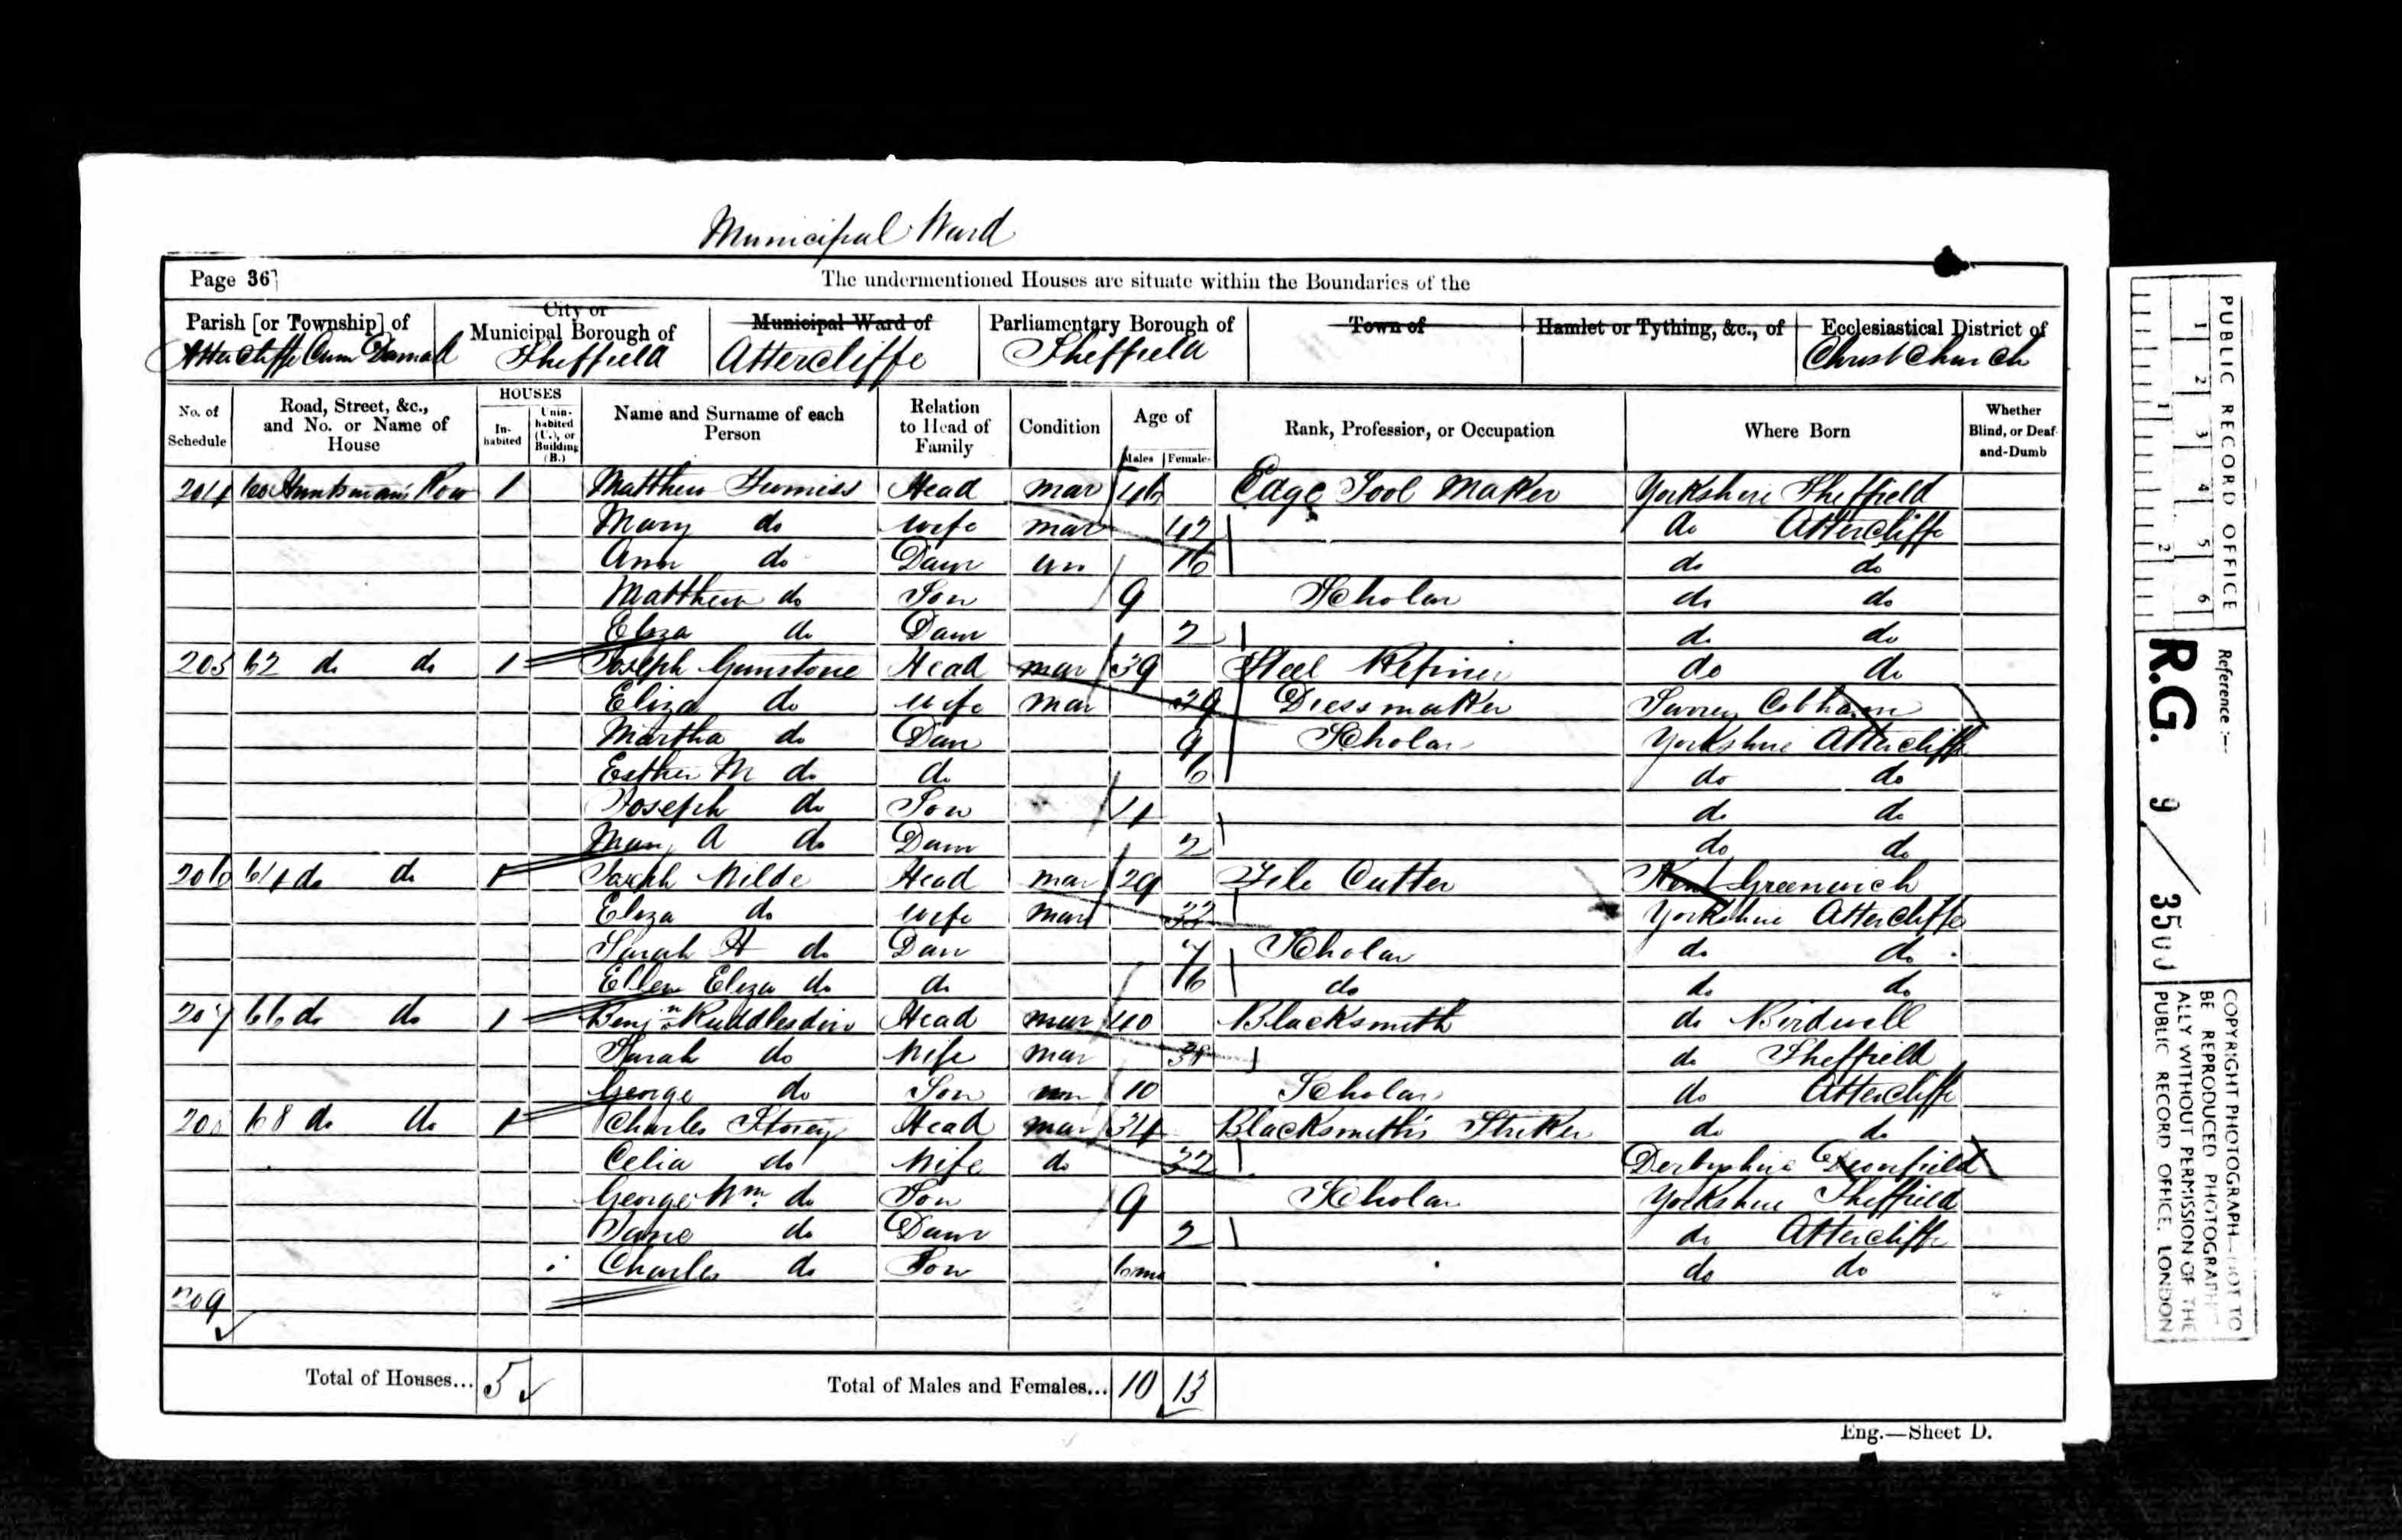 Municipal Ward
Page 36
The undermentioned Houses are situate within the Boundaries of the
Parish [or Township] of
City or Municipal Borough of
Municipal Ward of
Parliamentary Borough of
Town of
Hamlet or Tything, &c., of
Ecclesiastical District of
Attercliffe Cum Darnal
Sheffield
Attercliffe
Sheffield
Christ Church
No. of Schedule
Road, Street, &c., and No. or Name of House
HOUSES
In-habited
Unin-habited (U.), or Building (B.)
Name and Surname of each Person
Relation to Head of Family
Condition
Age of
Males
Females
Rank, Profession, or Occupation
Where Born
Whether Blind, or Deaf-and-Dumb
204 60 Huntsman's Row 1 Matthew Furniss Head mar 46 Edge Tool Maker Yorkshire Sheffield
Mary do Wife mar 42 do Attercliffe
Ann do Daur un 16 do do
Matthew do Son 9 Scholar do do
Eliza do Daur 2 do do
205 62 do do 1 Joseph Gunstone Head mar 39 Steel Refiner do do
Eliza do Wife mar 29 Dressmaker Surrey Cobham
Martha do Daur 9 Scholar Yorkshire Attercliffe
Esther M do do 6 do do
Joseph do Son 4 do do
Mary A do Daur 2 do do
206 64 do do 1 Wilde Head mar 29 File Cutter Kent Greenwich
Eliza do Wife mar 32 Yorkshire Attercliffe
Sarah H do Daur 7 Scholar do do
Ellen Eliza do do 6 do do do
207 66 do do 1 Benjn Ruddlesdin Head mar 40 Blacksmith do Birdwell
Sarah do Wife mar 38 do Sheffield
George do Son 10 Scholar do Attercliffe
68 do do 1 Charles Storey Head mar 34 Blacksmith's Striker do do
Celia do Wife do 32 Derbyshire Dronfield
George Wm. do Son 9 Scholar Yorkshire Sheffield
Jane do Daur 2 do Attercliffe
Charles do Son 6 mo do do
209
Total of Houses... 5
Total of Males and Females... 10 13
Eng.—Sheet D.
PUBLIC RECORD OFFICE
1 2 3 4 5 6
1 2
Reference:—
R.G. 9 / 3500
COPYRIGHT PHOTOGRAPH—NOT TO
BE REPRODUCED PHOTOGRAPHIC-
ALLY WITHOUT PERMISSION OF THE
PUBLIC RECORD OFFICE, LONDON